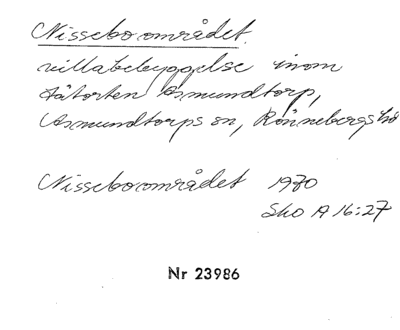 Nisseboområdet
villabebyggelse inom
tätorten Asmundtorp,
Asmundtorps sn, Rönnebergs hd
Nisseboområdet 1970
Sko A 16:27
Nr 23986